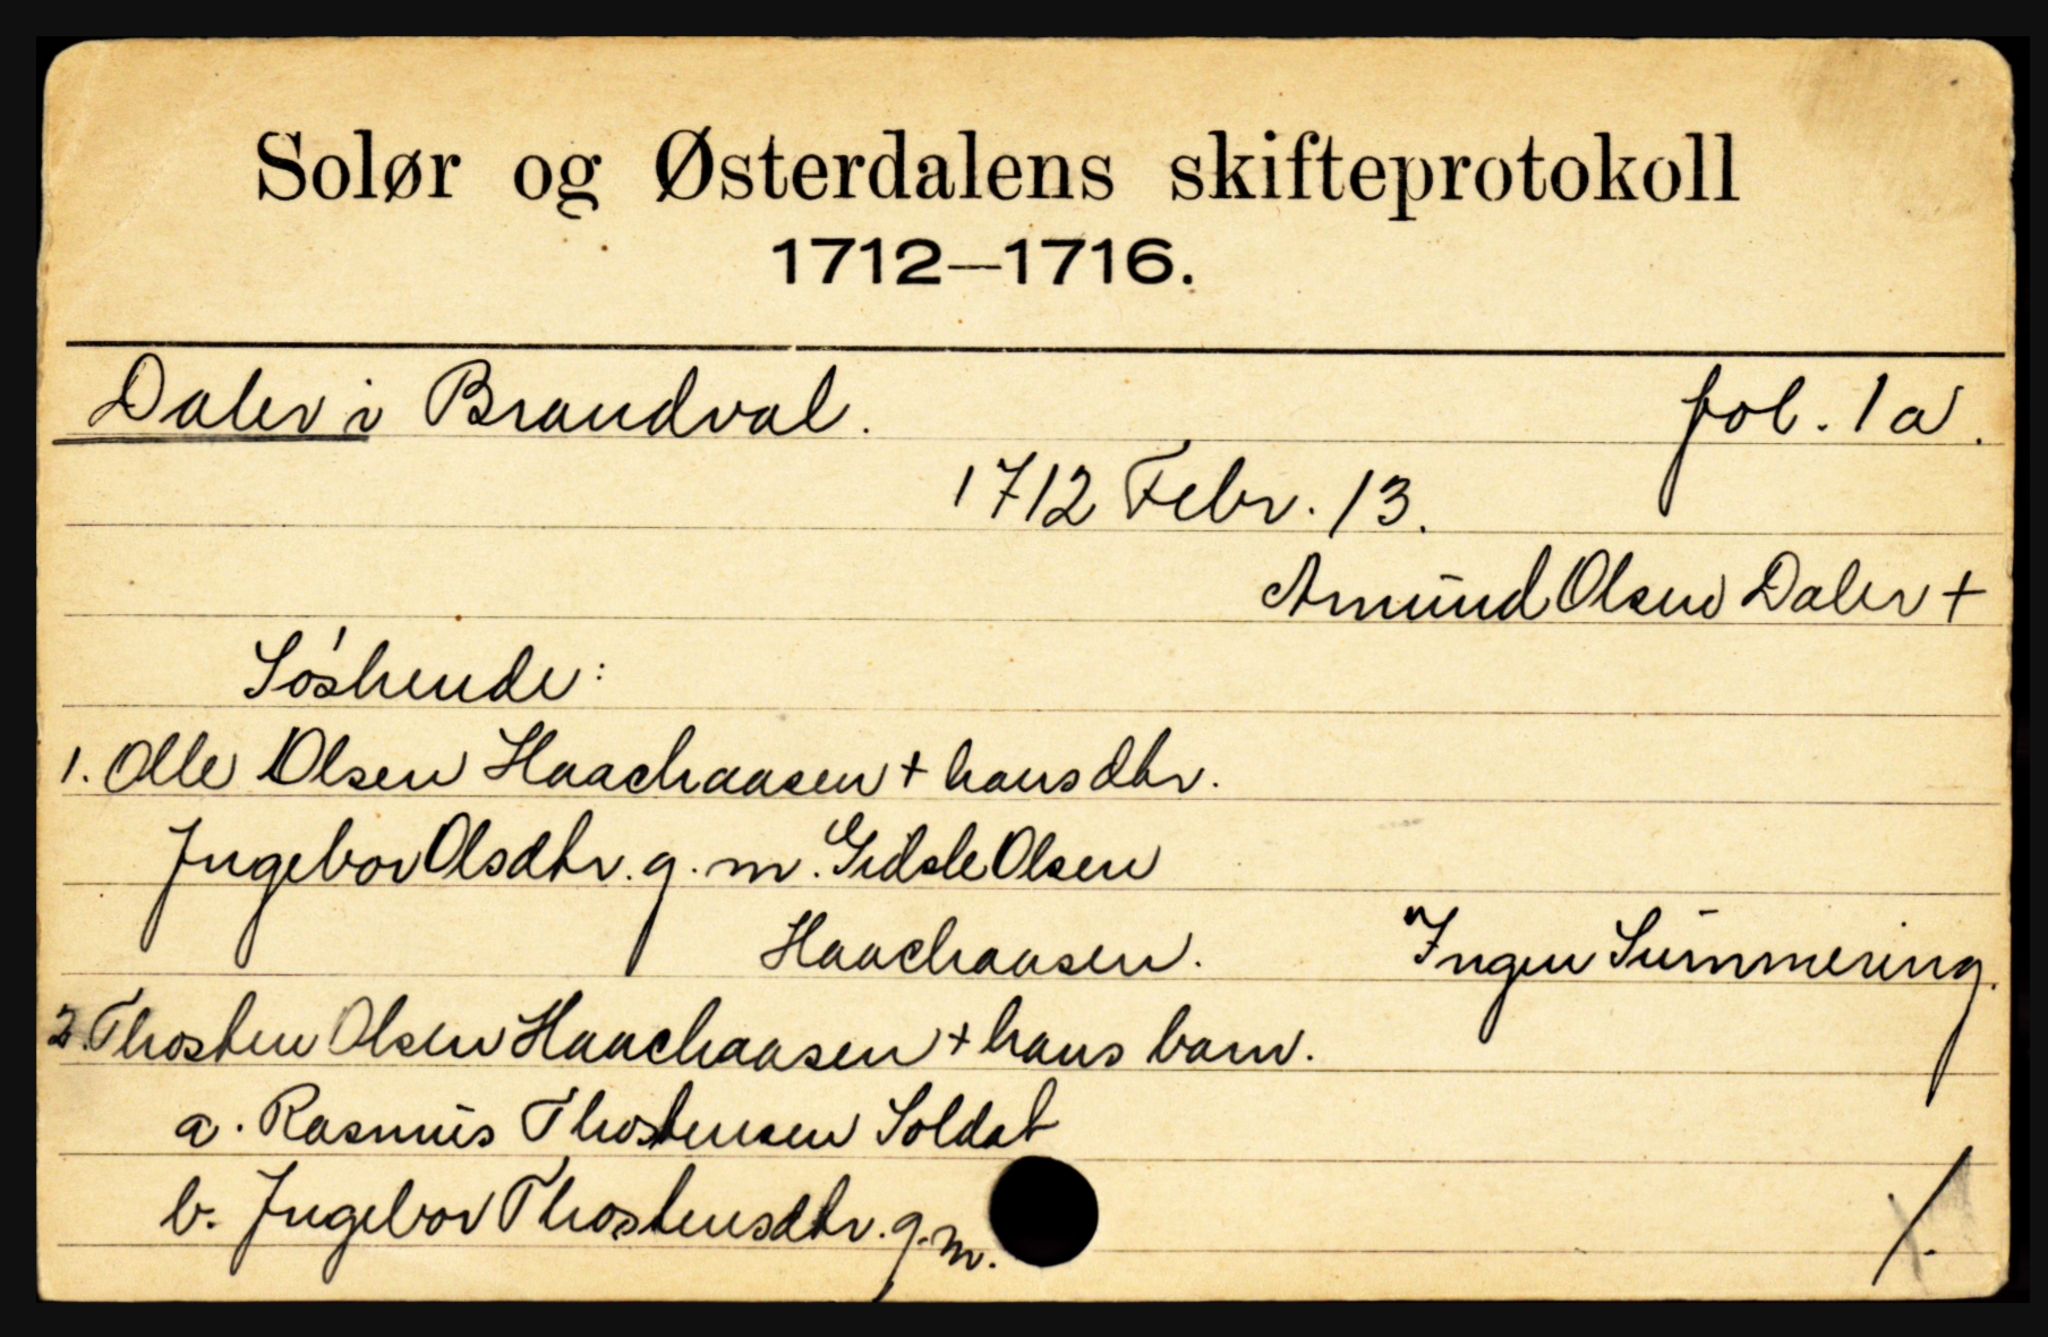 Solør og Østerdalens skifteprotokoll
1712—1716.
Daler i Brandval. fol. 1a.
1712 Febr. 13.
Amund Olsen Daler +
Søskende:
1. Olle Olsen Haachaasen + hans dtr.
Ingebor Olsdtr. g. m. Gidsle Olsen
Haachaasen. "Ingen Summering.
2. Thosten Olsen Haachaasen + hans barn.
a. Rasmus Thostensen Soldat
b. Ingebor Thostensdtr. g. m.
/.